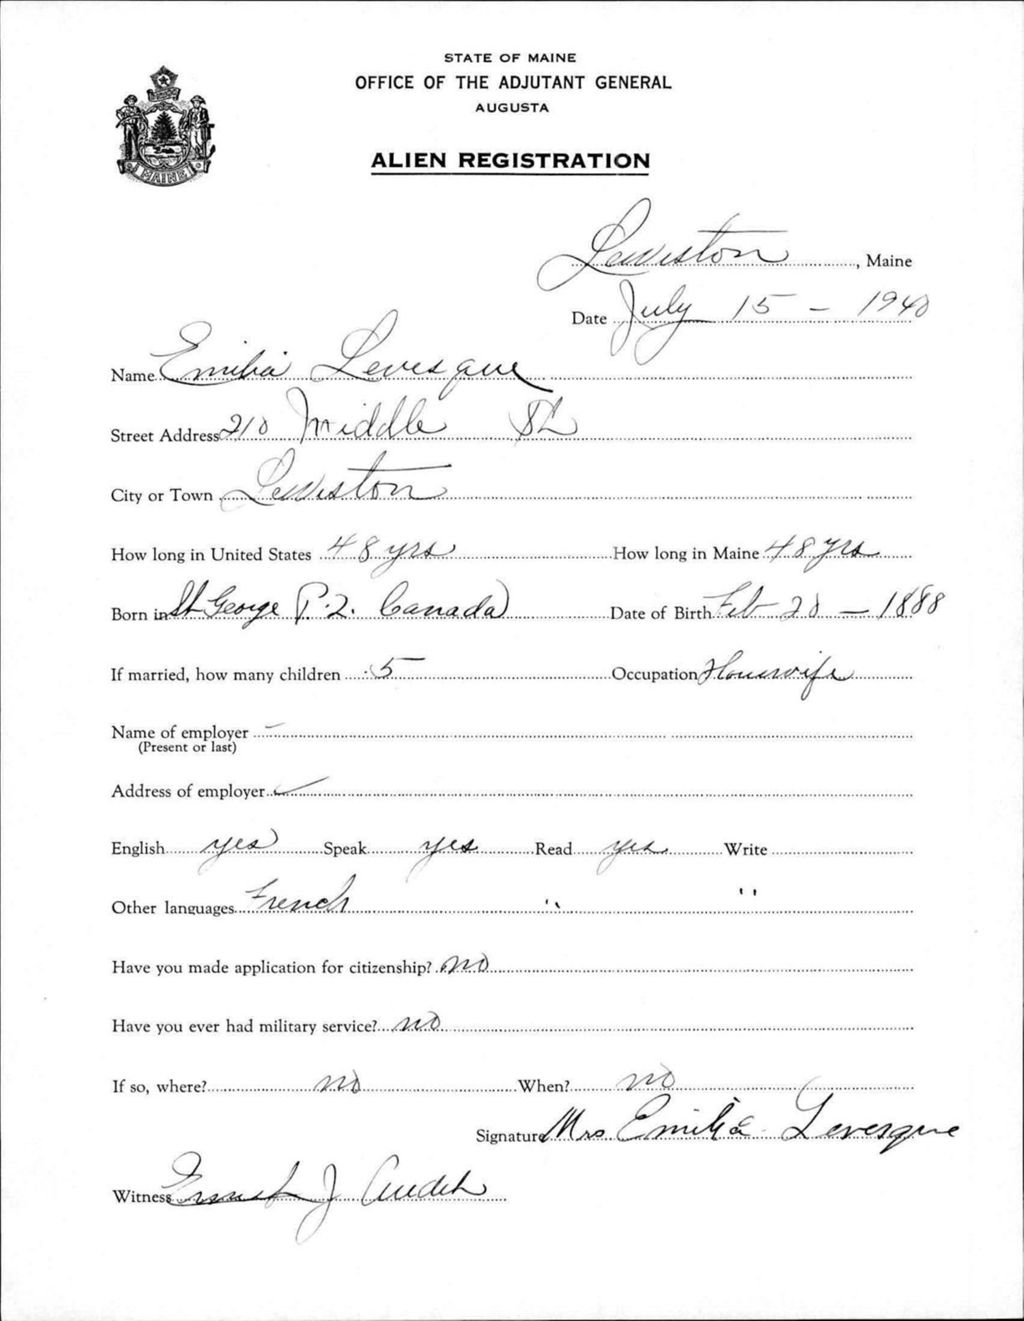 STATE OF MAINE
OFFICE OF THE ADJUTANT GENERAL
AUGUSTA
ALIEN REGISTRATION
MAINE
Lewiston, Maine
Date July 15 - 1940
Name Emilia Levesque
Street Address 210 Middle St
City or Town Lewiston
How long in United States 48 yrs How long in Maine 48 yrs
Born in St George P.Q. Canada Date of Birth Feb 20 - 1888
If married, how many children 5 Occupation Housewife
Name of employer -
(Present or last)
Address of employer
English yes Speak yes Read yes Write
Other languages French " "
Have you made application for citizenship? no
Have you ever had military service? no
If so, where? no When? no
Signature Mrs Emilia Levesque
Witness Ernest J